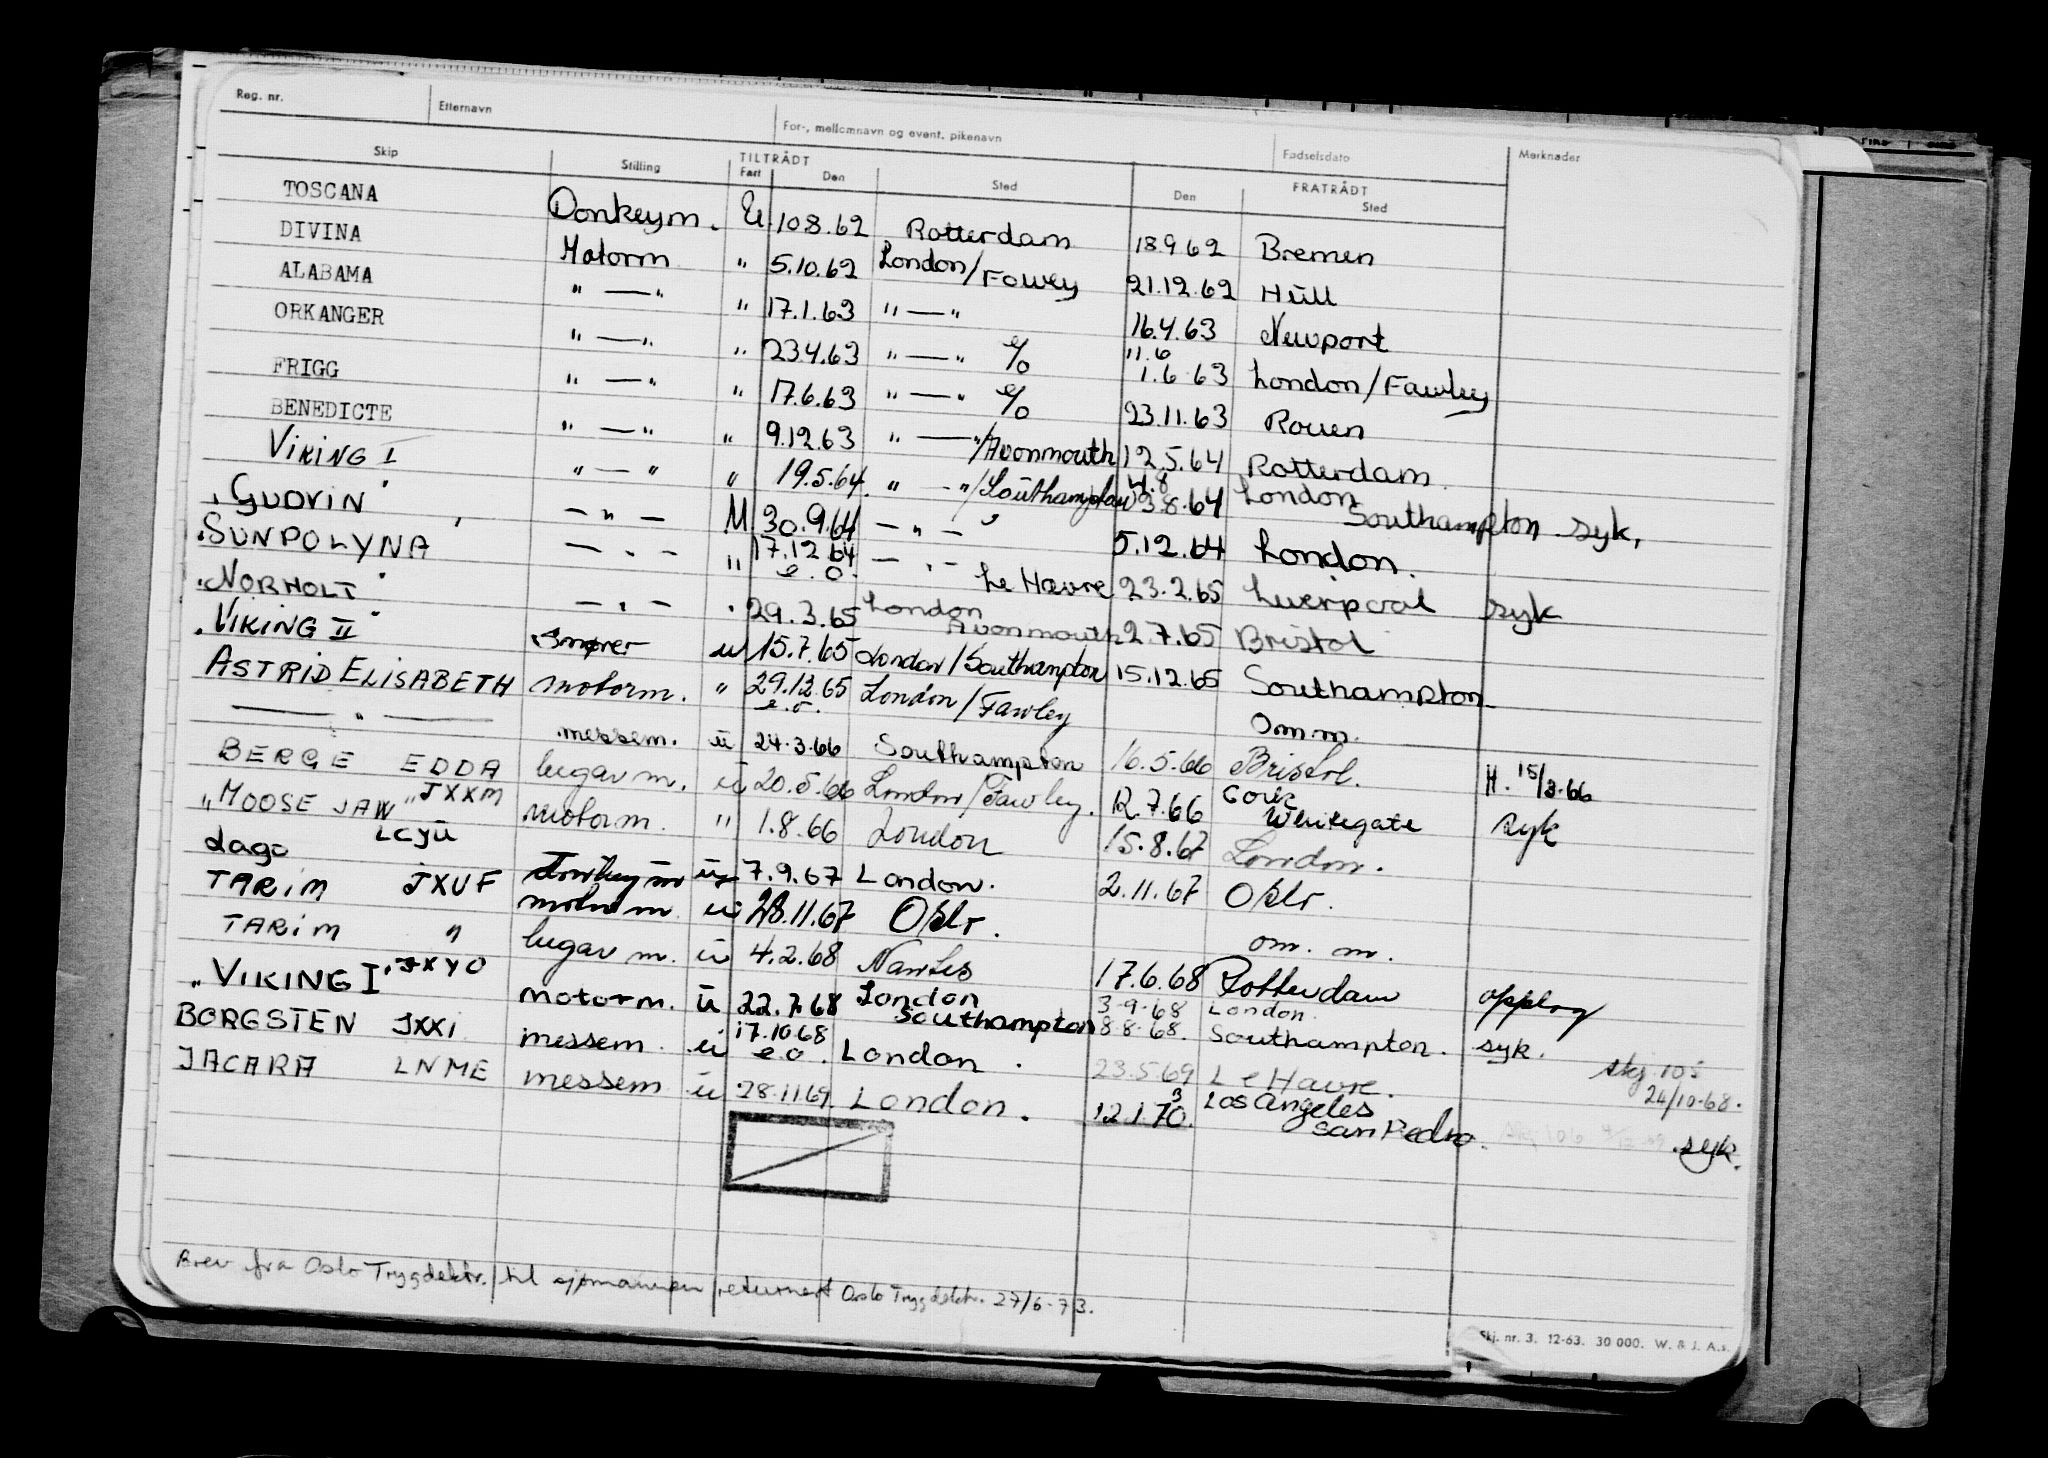 Reg. nr. Etternavn For-, mellomnavn og event. pikenavn Fødselsdato Merknader
Skip Stilling TILTRÅDT Fart Den Sted FRATRÅDT Den Sted
TOSCANA Donkeym. U. 10.8.62 Rotterdam 18.9.62 Bremen
DIVINA Motorm " 5.10.62 London/Fowey 21.12.62 Hull
ALABAMA " — " " 17.1.63 " — " 16.4.63 Newport
ORKANGER " — " " 23.4.63 " — " e/o 11.6 1.6.63 London/Fawley
FRIGG " — " " 17.6.63 " — " e/o 23.11.63 Rouen
BENEDICTE " — " " 9.12.63 " — "/Avonmouth 12.5.64 Rotterdam
VIKING I " — " " 19.5.64 " — "/Southampton 4.8 3.8.64 London Southampton syk.
"GUDVIN" — " — M 30.9.64 — " — 5.12.64 London.
"SUNPOLYNA — " — " 17.12.64 e.o. — " — Le Havre 23.2.65 Liverpool syk
"NORHOLT" — " — " 29.3.65 London Avonmouth 2.7.65 Bristol
"VIKING II" smører u 15.7.65 London/Southampton 15.12.65 Southampton
ASTRID ELISABETH motorm. " 29.12.65 e.o. London/Fawley Om.m.
— " — messem. u 24.3.66 Southampton 16.5.66 Bristol. H. 15/3-66
BERGE EDDA lugarm. u 20.5.66 London/Fawley. 12.7.66 Cork Whitegate syk
"MOOSE JAW" JXXM motorm. " 1.8.66 London 15.8.67 London.
Lago LCYU u 7.9.67 London. 2.11.67 Oslo.
TARIM JXUF motorm u 28.11.67 Oslo. om. m.
TARIM " lugarm. u 4.2.68 Nantes 17.6.68 Rotterdam opplag
"VIKING I" JXYO motorm. u 22.7.68 London Southampton 3-9-68 8.8.68. London. Southampton. syk.
BORGSTEN JXXI messem. u 17.10.68 e.o. London. 23.5.69 Le Havre. skj 105 24/10-68.
JACARA LNME messem u 28.11.69. London. 12.1.70. 3 Los Angeles San Pedro. syk.
Brev fra Oslo Trygdektr. til sjømannen returnert Oslo Trygdektr. 27/6-73.
Skj. nr. 3. 12-63. 30 000. W. & J. A.s.